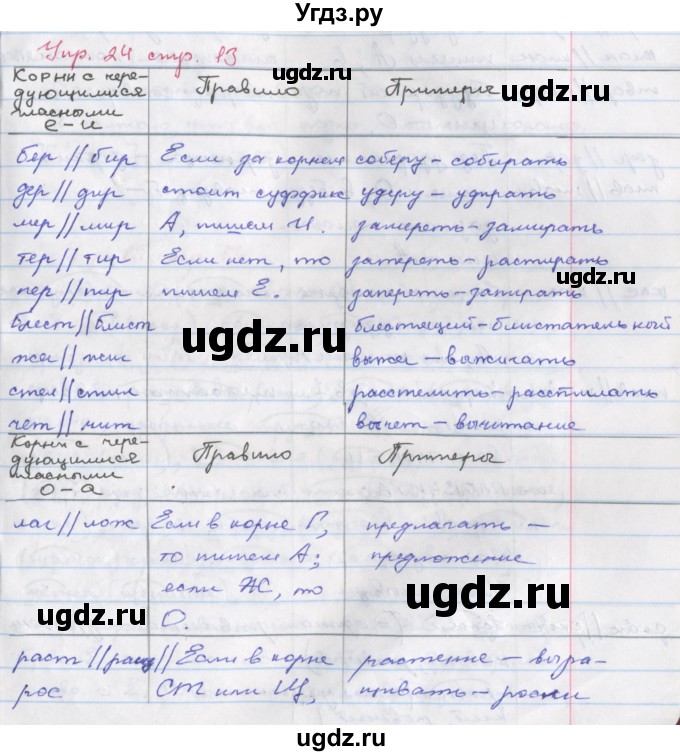 Угдз.ру
Упр. 24 стр. 13
Корни с чере-
дующимися
гласными
е – и
Правило
Примеры
ugdz.ru
ugdz.ru
бер // бир Если за корнем соберу – собирать
дер // дир стоит суффикс удеру – удирать
мер // мир А, пишем И. замереть – замирать
тер // тир Если нет, то затереть – растирать
ugdz.ru
пер // пир пишем Е. запереть – запирать
блест // блист блестящий – блистательный
ugdz.ru
жег // жиг выжег – выжигать
стел // стил расстелить – расстилать
чет // чит вычет – вычитание
Корни с чере-
дующимися
гласными
о – а
Правило
Примеры
лаг // лож Если в корне Г, предлагать –
то пишем А; предложение
ugdz.ru
если Ж, то
ugdz.ru
О.
ugdz.ru
раст // ращ // Если в корне растение – выра-
рос СТ или Щ, щивать – росли
ugdz.ru